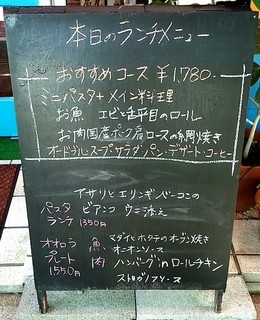 本日のランチメニュー
おすすめコース ¥1,780-
ミニパスタ+メイン料理
お魚 エビと舌平目のロール
お肉 国産ポーク肩ロースの網焼き
オードブル・スープ・サラダ・パン・デザート・コーヒー
アサリとエリンギ、ベーコンの
パスタ ビアンコ ウニ添え
ランチ 1350円
オホロ 魚 マダイとホタテのオーブン焼き
プレート オーロラソース
1550円 肉 ハンバーグ in ロールチキン
ストロガノフソース